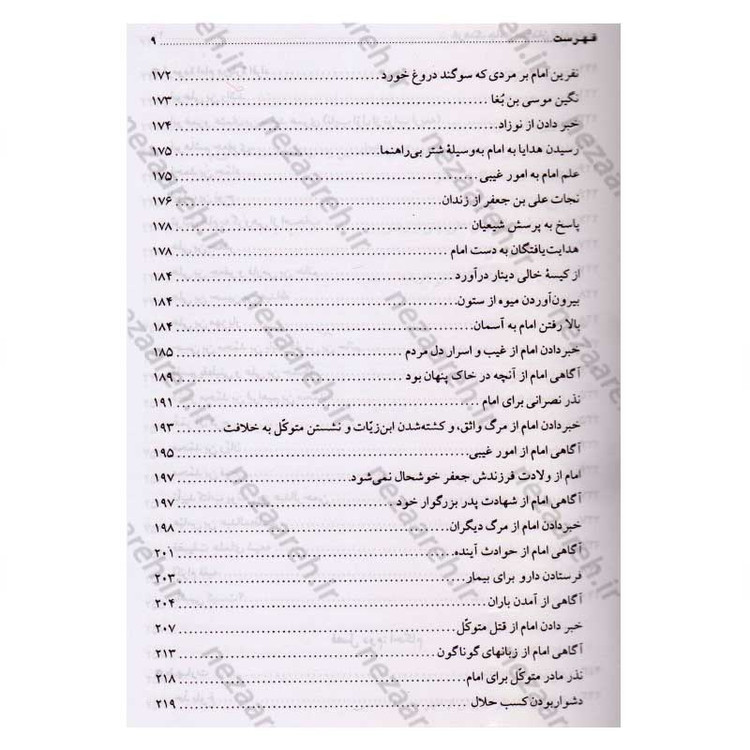 فهرست ........ ۹
نفرین امام بر مردی که سوگند دروغ خورد ........ ۱۷۲
نگین موسی بن بُغا ........ ۱۷۳
خبر دادن از نوزاد ........ ۱۷۴
رسیدن هدایا به امام به‌وسیلهٔ شتر بی‌راهنما ........ ۱۷۵
علم امام به امور غیبی ........ ۱۷۵
نجات علی بن جعفر از زندان ........ ۱۷۶
پاسخ به پرسش شیعیان ........ ۱۷۸
هدایت‌یافتگان به دست امام ........ ۱۷۸
از کیسهٔ خالی دینار درآورد ........ ۱۸۴
بیرون‌آوردن میوه از ستون ........ ۱۸۴
بالا رفتن امام به آسمان ........ ۱۸۴
خبردادن امام از غیب و اسرار دل مردم ........ ۱۸۵
آگاهی امام از آنچه در خاک پنهان بود ........ ۱۸۹
نذر نصرانی برای امام ........ ۱۹۱
خبردادن امام از مرگ واثق، و کشته‌شدن ابن‌زیّات و نشستن متوکّل به خلافت ........ ۱۹۳
آگاهی امام از امور غیبی ........ ۱۹۵
امام از ولادت فرزندش جعفر خوشحال نمی‌شود ........ ۱۹۷
آگاهی امام از شهادت پدر بزرگوار خود ........ ۱۹۷
خبردادن امام از مرگ دیگران ........ ۱۹۸
آگاهی امام از حوادث آینده ........ ۲۰۱
فرستادن دارو برای بیمار ........ ۲۰۳
آگاهی از آمدن باران ........ ۲۰۴
خبر دادن امام از قتل متوکّل ........ ۲۰۷
آگاهی امام از زبانهای گوناگون ........ ۲۱۳
نذر مادر متوکّل برای امام ........ ۲۱۸
دشواربودن کسب حلال ........ ۲۱۹
nezaareh.ir